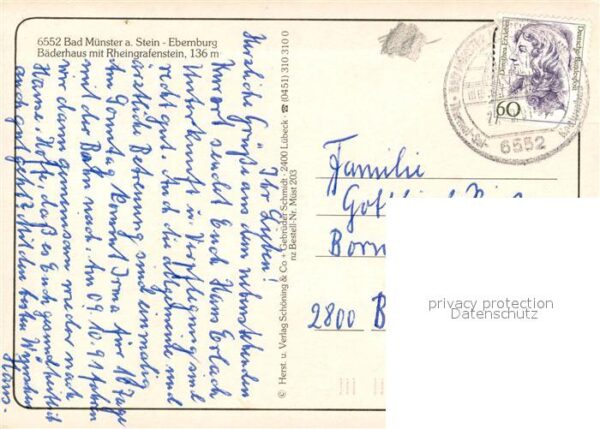 6552 Bad Münster a. Stein - Ebernburg
Bäderhaus mit Rheingrafenstein, 136 m
Ihr Lieben!
Herzliche Grüße aus dem nebenstehenden
Kurort sendet Euch Hans Erlach
Unterkunft u. Verpflegung sind
recht gut. Auch die pflegende und
ärztliche Betreuung sind einmalig
Am Sonntag kommt Irma für 10 Tage
mit der Bahn nach. Am 09.10.91 fahren
wir dann gemeinsam wieder nach
Hause. Hoffe, daß es Euch gesundheitlich
auch gut geht? Mit den besten Wünschen
Hans.
© Herst. u. Verlag Schöning & Co + Gebrüder Schmidt · 2400 Lübeck · ☎ (0451) 310 310 0
nz Bestell-Nr. Müst 203
Deutsche Bundespost
60
6552
Familie
2800 B
privacy protection
Datenschutz